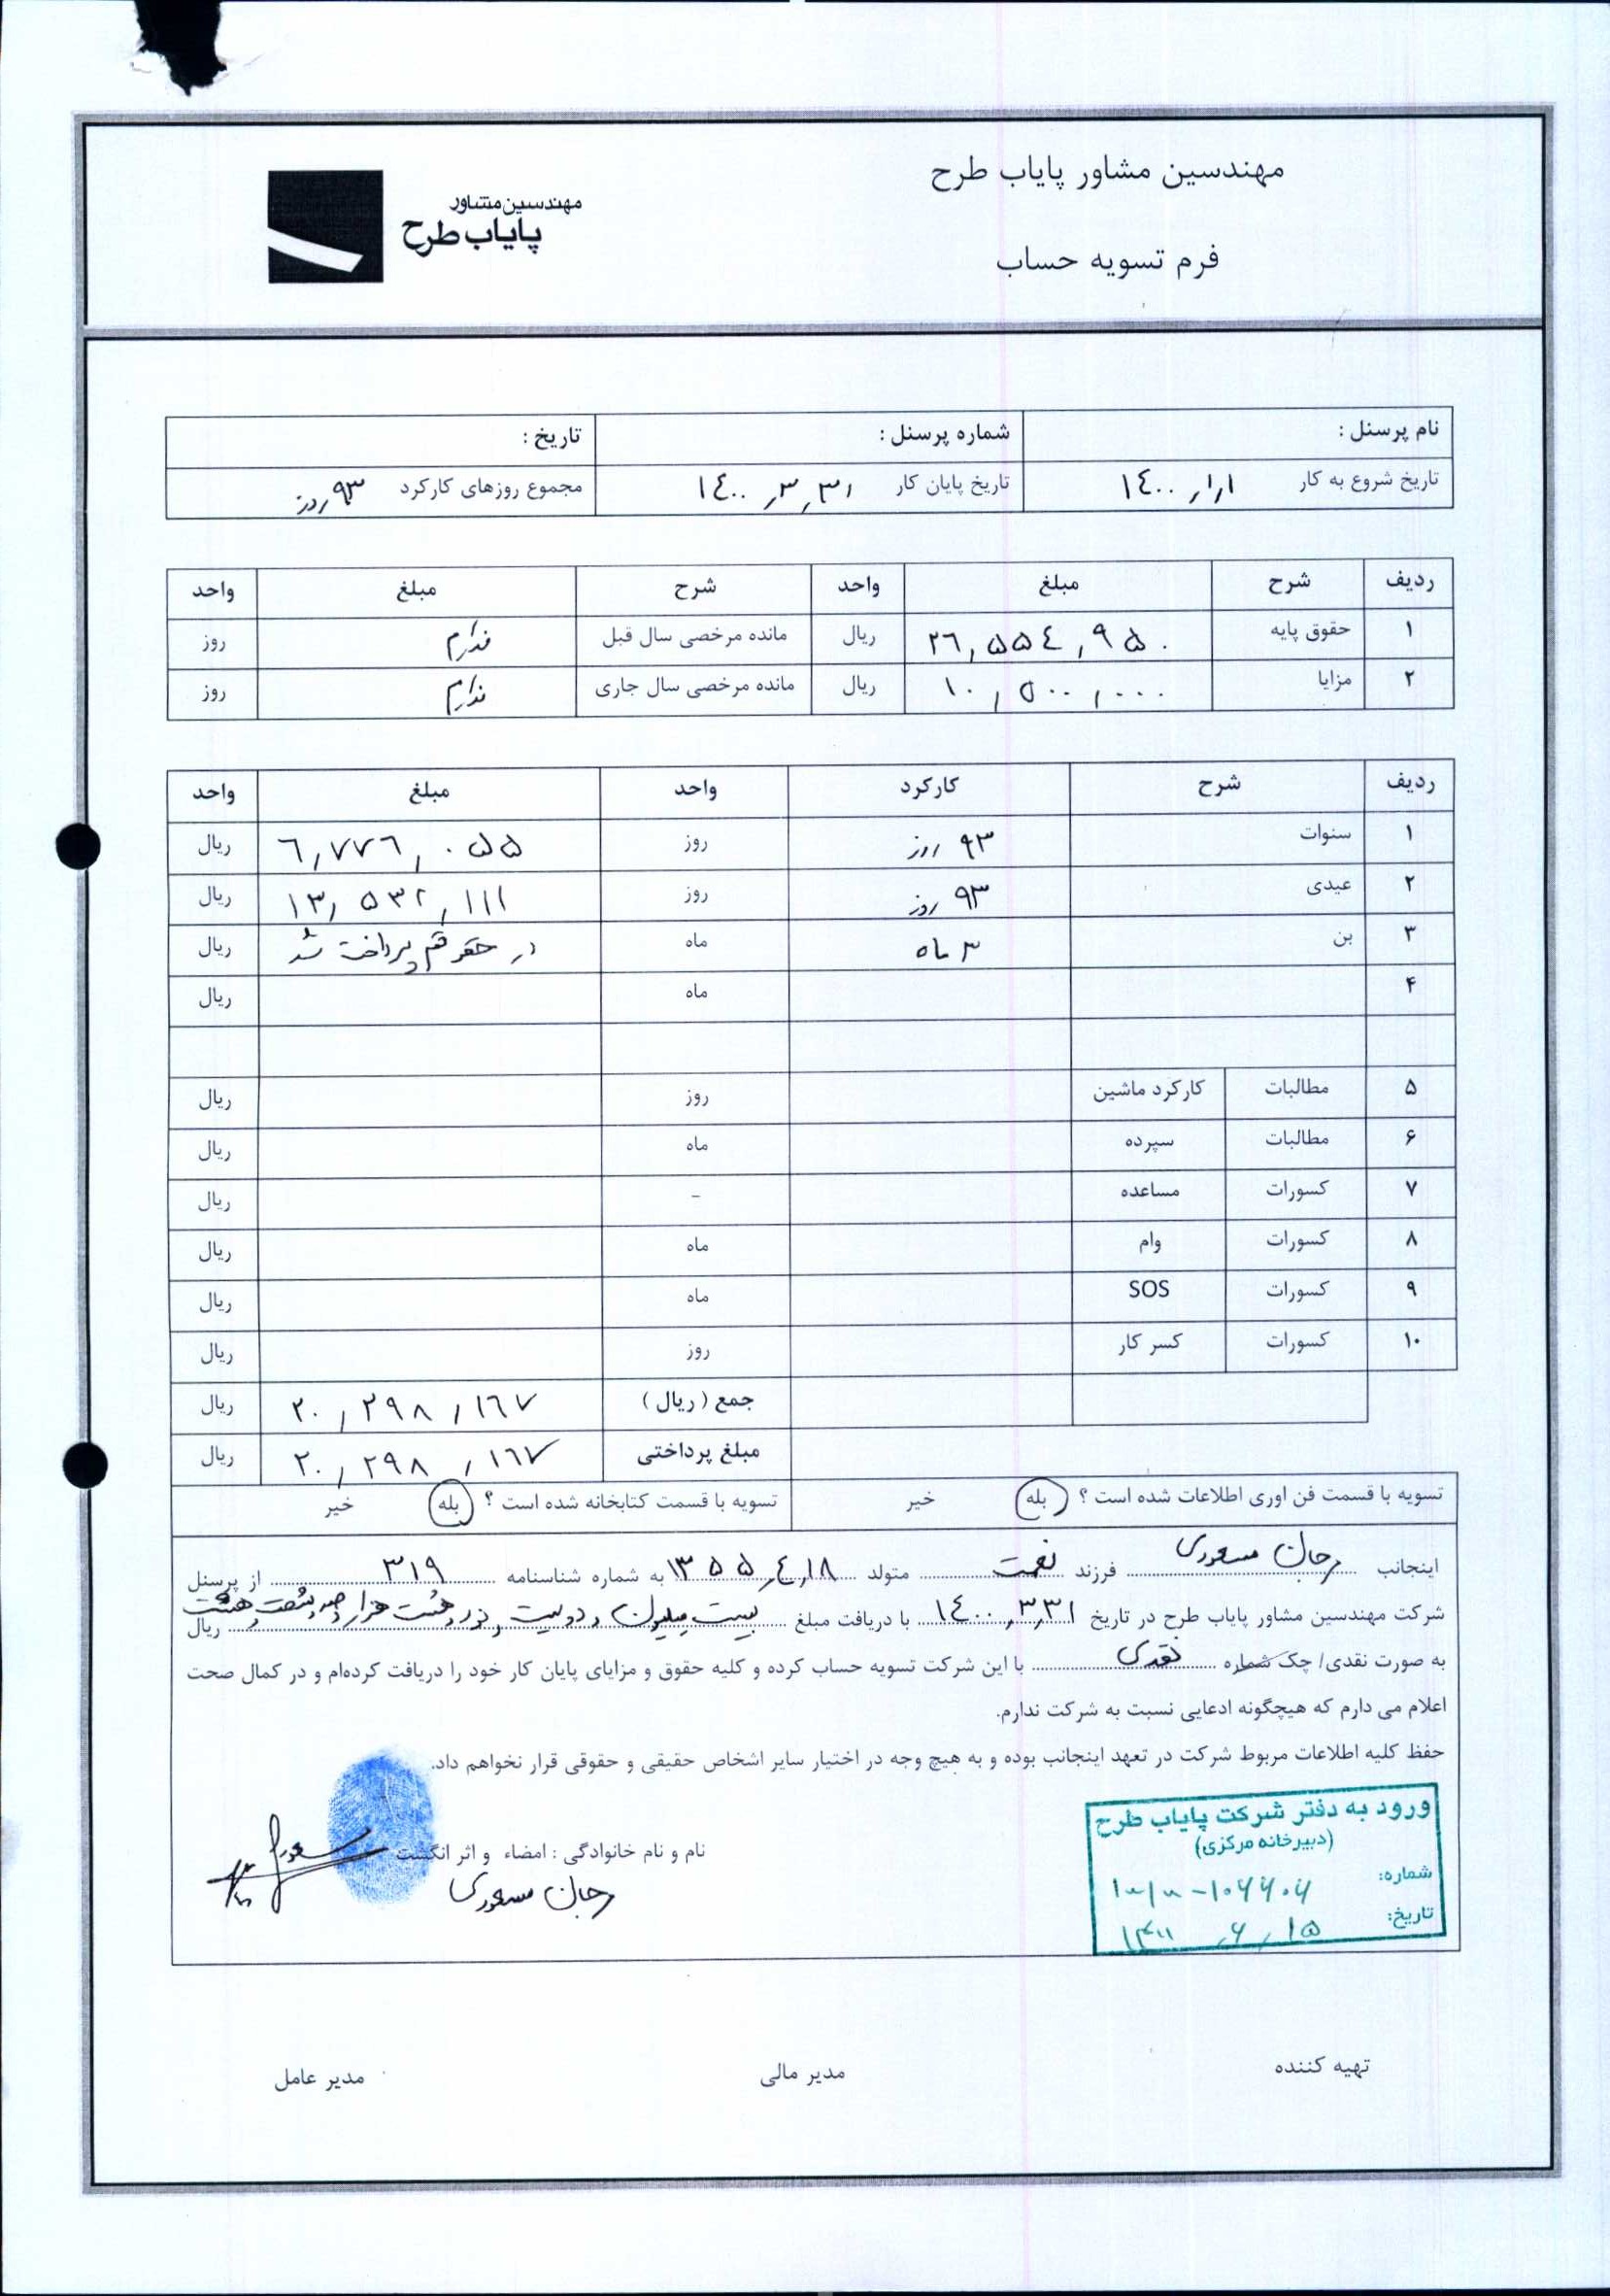 مهندسین مشاور پایاب طرح
مهندسین مشاور
پایاب طرح
فرم تسویه حساب
نام پرسنل : شماره پرسنل : تاریخ :
تاریخ شروع به کار ۱۴۰۰,۱,۱ تاریخ پایان کار ۱۴۰۰,۳,۳۱ مجموع روزهای کارکرد ۹۳ روز
ردیف شرح مبلغ واحد شرح مبلغ واحد
۱ حقوق پایه ۲۶,۵۵۴,۹۵۰ ریال مانده مرخصی سال قبل ندارم روز
۲ مزایا ۱۰,۵۰۰,۰۰۰ ریال مانده مرخصی سال جاری ندارم روز
ردیف شرح کارکرد واحد مبلغ واحد
۱ سنوات ۹۳ روز روز ۶,۷۷۶,۰۵۵ ریال
۲ عیدی ۹۳ روز روز ۱۳,۵۳۲,۱۱۱ ریال
۳ بن ۳ ماه ماه در حقوقم پرداخت شد ریال
۴ ماه ریال
۵ مطالبات کارکرد ماشین روز ریال
۶ مطالبات سپرده ماه ریال
۷ کسورات مساعده - ریال
۸ کسورات وام ماه ریال
۹ کسورات SOS ماه ریال
۱۰ کسورات کسر کار روز ریال
جمع (ریال) ۲۰,۲۹۸,۱۶۷ ریال
مبلغ پرداختی ۲۰,۲۹۸,۱۶۷ ریال
تسویه با قسمت فن اوری اطلاعات شده است ؟ بله خیر تسویه با قسمت کتابخانه شده است ؟ بله خیر
اینجانب مرجان مسعودی فرزند نعمت متولد ۱۳۵۵,۴,۱۸ به شماره شناسنامه ۳۱۹ از پرسنل
شرکت مهندسین مشاور پایاب طرح در تاریخ ۱۴۰۰,۳,۳۱ با دریافت مبلغ بیست میلیون و دویست و نود و هشت هزار و صد و شصت و هشت ریال
به صورت نقدی/ چک شماره نقدی با این شرکت تسویه حساب کرده و کلیه حقوق و مزایای پایان کار خود را دریافت کرده‌ام و در کمال صحت
اعلام می دارم که هیچگونه ادعایی نسبت به شرکت ندارم.
حفظ کلیه اطلاعات مربوط شرکت در تعهد اینجانب بوده و به هیچ وجه در اختیار سایر اشخاص حقیقی و حقوقی قرار نخواهم داد.
ورود به دفتر شرکت پایاب طرح
(دبیرخانه مرکزی)
شماره:
تاریخ:
نام و نام خانوادگی : امضاء و اثر انگشت
مرجان مسعودی
تهیه کننده مدیر مالی مدیر عامل